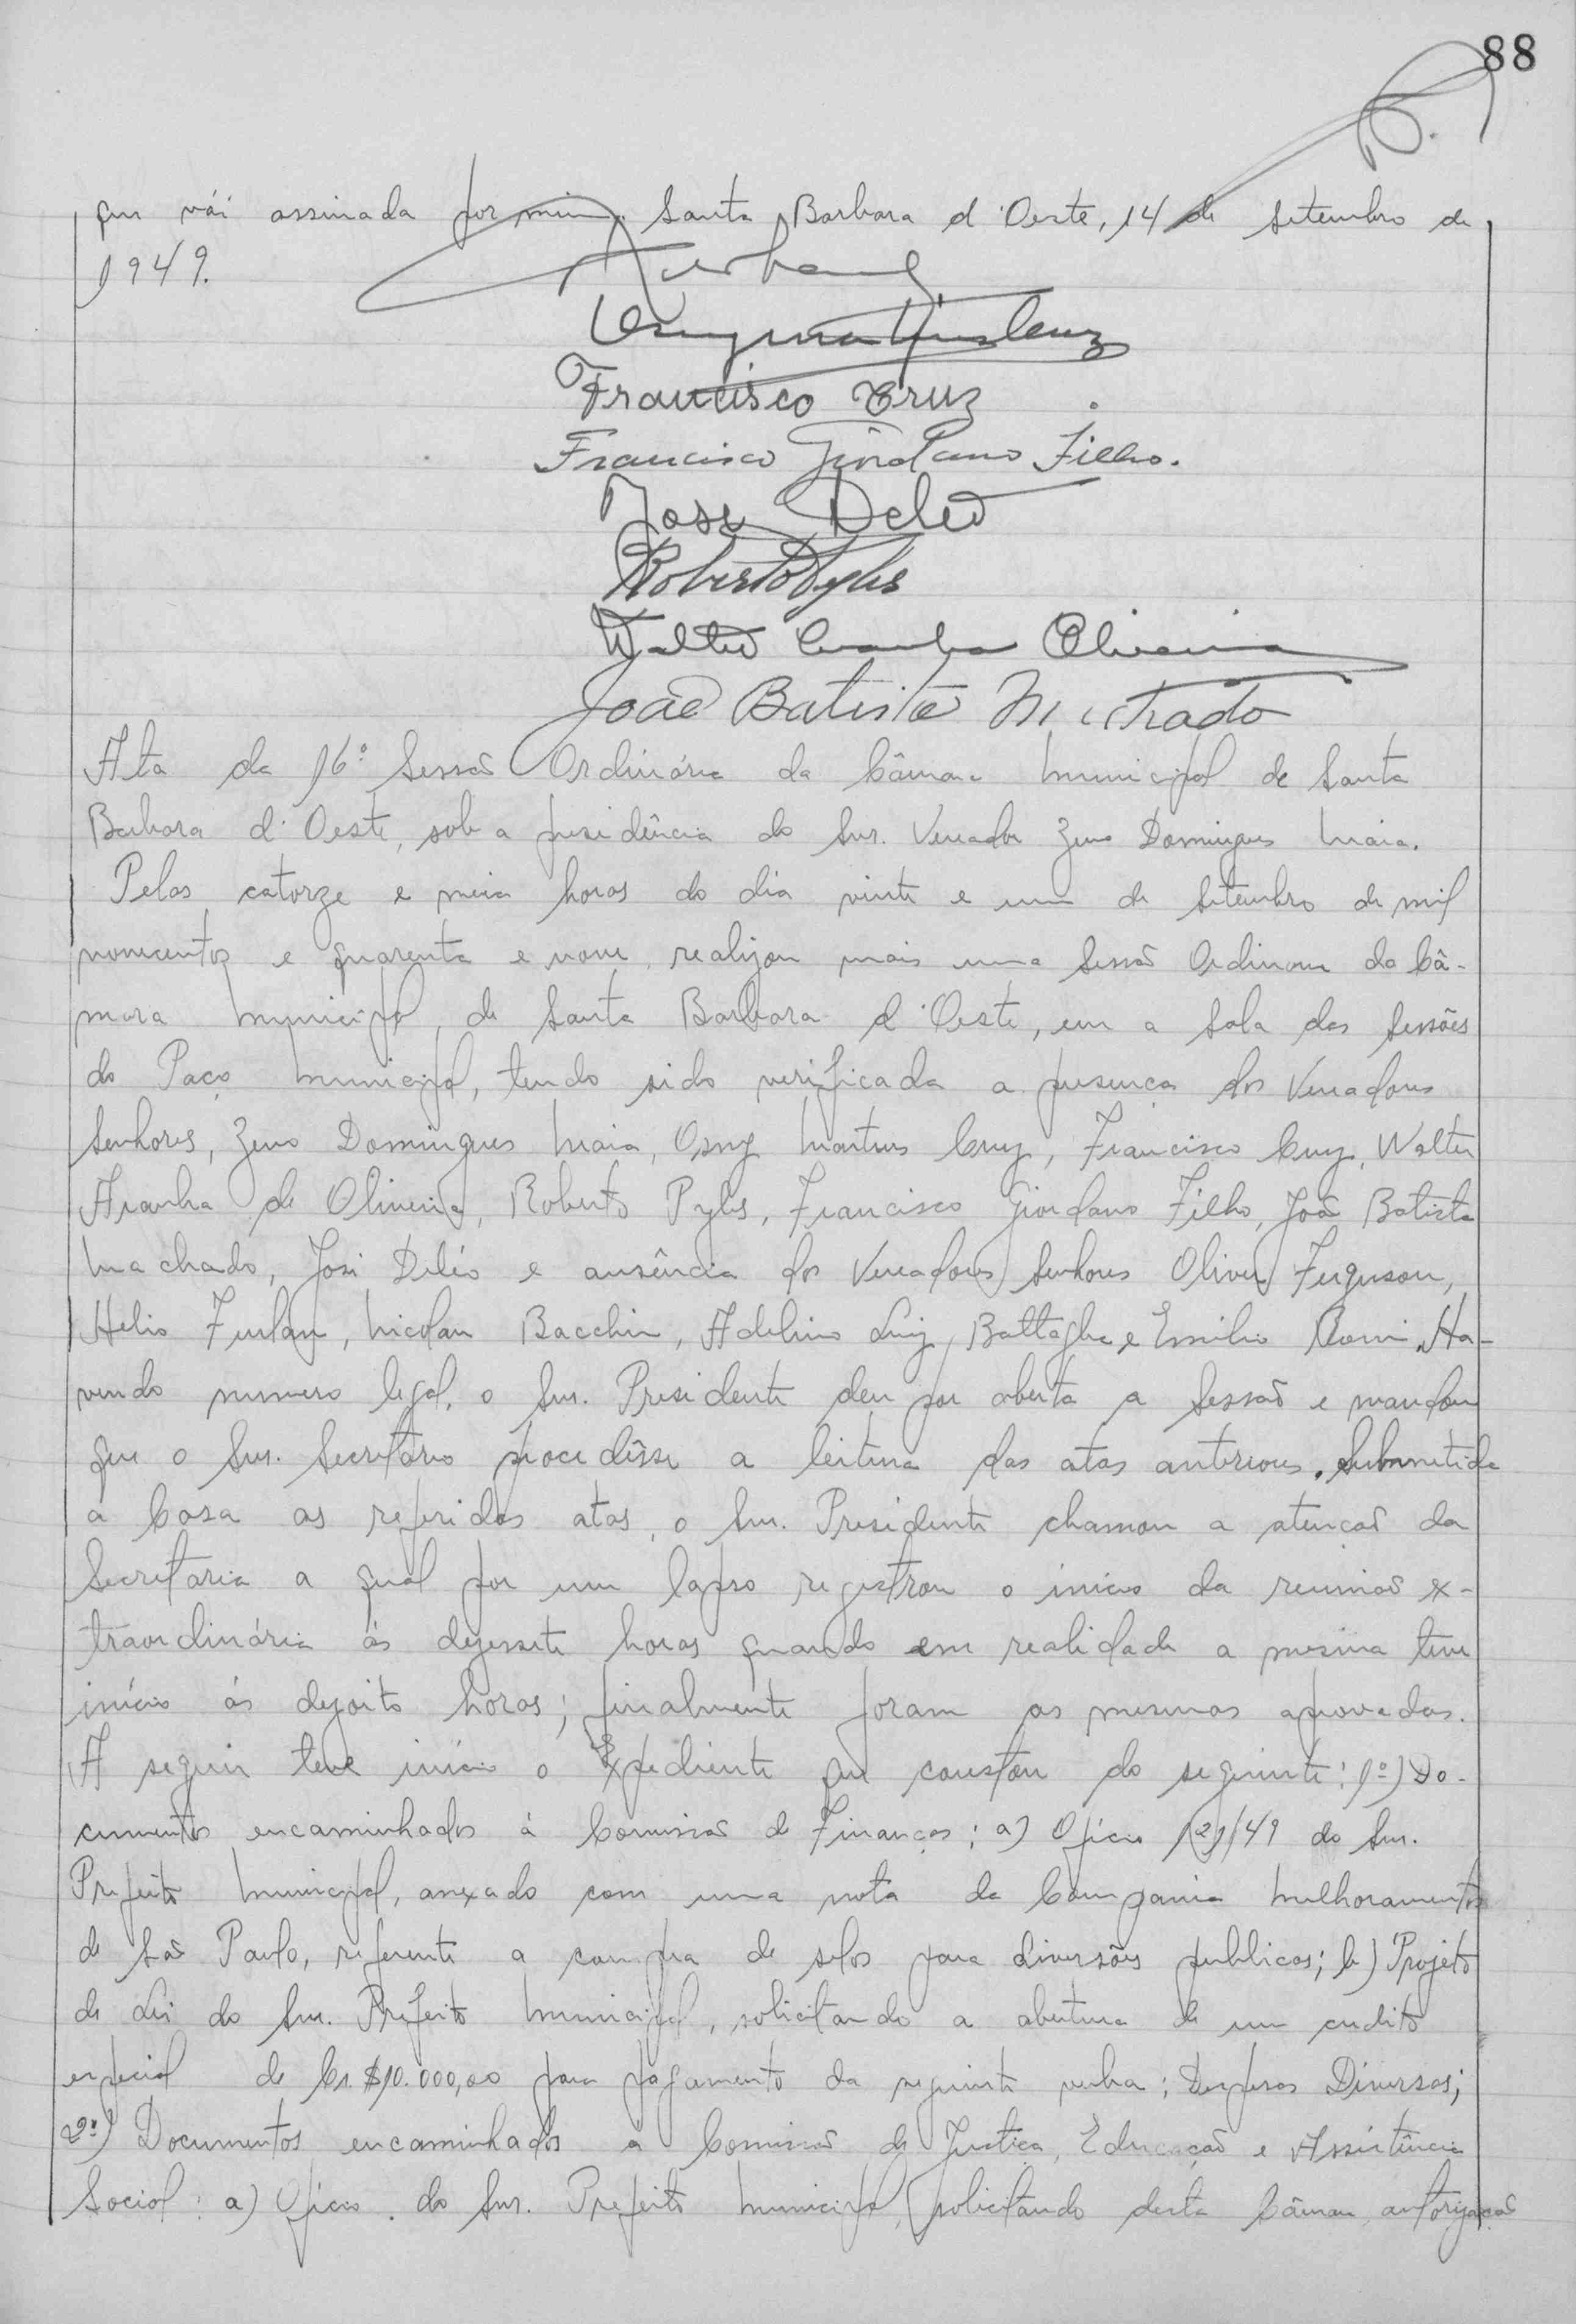 88
que vái assinada por mim. Santa Barbara d'Oeste, 14 de Setembro de
1949.
Francisco Cruz
Francisco Giordano Filho.
José Deléo
Roberto Pyles
Walter Aranha Oliveira
João Batista Machado
Ata da 16º Sessão Ordinária da Câmara Municipal de Santa
Barbara d'Oeste, sob a presidência do Snr. Vereador Zeno Domingues Maia.
Pelas catorze e meia horas do dia vinte e um de Setembro de mil
novecentos e quarenta e nove, realizou mais uma Sessão Ordinaria da Câ-
mara Municipal, de Santa Barbara d'Oeste, em a Sala das Sessões
do Paço Municipal, tendo sido verificada a presença dos Vereadores
Senhores, Zeno Domingues Maia, Osny Martins Cruz, Francisco Cruz, Walter
Aranha de Oliveira, Roberto Pyles, Francisco Giordano Filho, João Batista
Machado, José Deléo e ausência dos Vereadores Senhores Oliver Ferguson,
Helio Furlan, Nicolau Bacchin, Adelino Luiz Battaglia e Emilio Romi. Ha-
vendo numero legal, o Snr. Presidente deu por aberta a Sessão e mandou
que o Snr. Secretário procedêsse a leitura das atas anteriores. Submetida
a Casa as referidas atas, o Snr. Presidente chamou a atenção da
Secretaria a qual por um lapso registrou o início da reunião ex-
traordinária ás dezessete horas quando em realidade a mesma teve
início ás dezoito horas; finalmente foram as mesmas aprovadas.
A seguir teve início o Expediente que constou do seguinte: 1º) Do-
cumentos encaminhados á Comissão de Finanças: a) Ofício 121/49 do Snr.
Prefeito Municipal, anexado com uma nota da Compania Melhoramentos
de São Paulo, referente a compra de selos para diversões publicas; b) Projeto
de Lei do Snr. Prefeito Municipal, solicitando a abertura de um credito
especial de Cr.$10.000,00 para pagamento da seguinte verba: Despesas Diversas;
2º) Documentos encaminhados a Comissão de Justiça, Educação e Assistência
Social: a) Ofício do Snr. Prefeito Municipal, solicitando desta Câmara, autorização